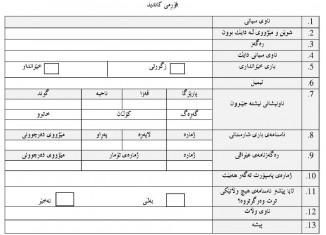 فۆرمی کاندید
1. ناوی سیانی
2. شوێن و مێژووی لە دایک بوون
3. ڕەگەز
4. ناوی سیانی دایک
5. باری خێزانداری زگورتی خێزاندار
6. ئیمیل
7. ناونیشانی نیشتەجێبوون پارێزگا قەزا ناحیە گوند
گەڕەک کۆڵان خانوو
8. ناسنامەی باری شارستانی ژمارە لاپەڕە پەڕاو مێژووی دەرچوونی
9. ڕەگەزنامەی عێراقی ژمارە ژمارەی تۆمار مێژووی دەرچوونی
10. ژمارەی پاسپۆرت ئەگەر هەبێت
11. ئایا پێشتر ناسنامەی هیچ وڵاتێکی ترت وەرگرتووە؟ بەڵێ نەخێر
12. ناوی وڵات
13. پیشە